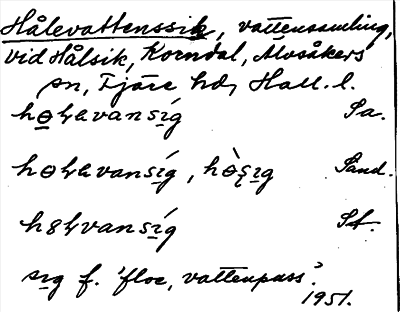 Hålevattenssik, vattensamling,
vid Hålsik, Korndal, Älvsåkers
sn, Fjäre hd, Hall. l.
hɵⱨavansíg Sa.
hɵⱨavansíg, hɵ̀sıg Sand.
høⱨvansíg St.
sıg f. 'floe, vattenpuss'.
1951.